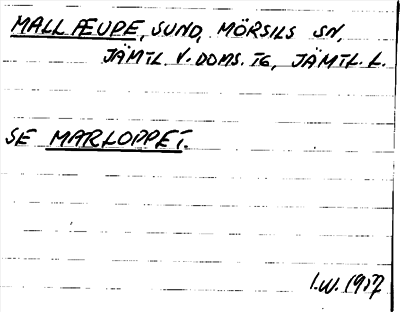 MALLÆUPE, SUND, MÖRSILS SN,
JÄMTL. V. DOMS. TG, JÄMTL. L.
SE MARLOPPET.
I.W. 1917